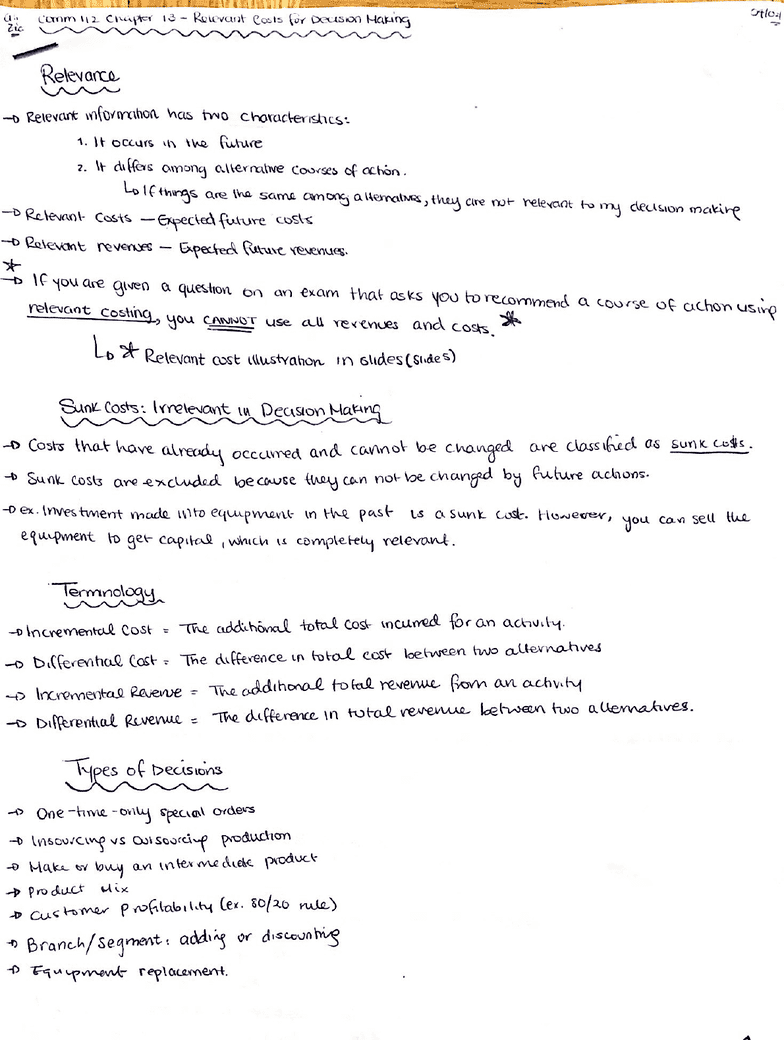 Comm 112 Chapter 13 - Relevant Costs for Decision Making
Relevance
→ Relevant information has two characteristics:
1. It occurs in the future
2. It differs among alternative courses of action.
↳ If things are the same among alternatives, they are not relevant to my decision making
→ Relevant costs — Expected future costs
→ Relevant revenues — Expected future revenues.
*
→ If you are given a question on an exam that asks you to recommend a course of action using
relevant costing, you CANNOT use all revenues and costs. *
↳ * Relevant cost illustration in slides (slide 5)
Sunk Costs: Irrelevant in Decision Making
→ Costs that have already occurred and cannot be changed are classified as sunk costs.
→ Sunk costs are excluded because they can not be changed by future actions.
→ ex. Investment made into equipment in the past is a sunk cost. However, you can sell the
equipment to get capital, which is completely relevant.
Terminology
→ Incremental Cost = The additional total cost incurred for an activity.
→ Differential Cost = The difference in total cost between two alternatives
→ Incremental Revenue = The additional total revenue from an activity
→ Differential Revenue = The difference in total revenue between two alternatives.
Types of Decisions
→ One-time-only special orders
→ Insourcing vs outsourcing production
→ Make or buy an intermediate product
→ Product Mix
→ Customer profitability (ex. 80/20 rule)
→ Branch/Segment: adding or discounting
→ Equipment replacement.